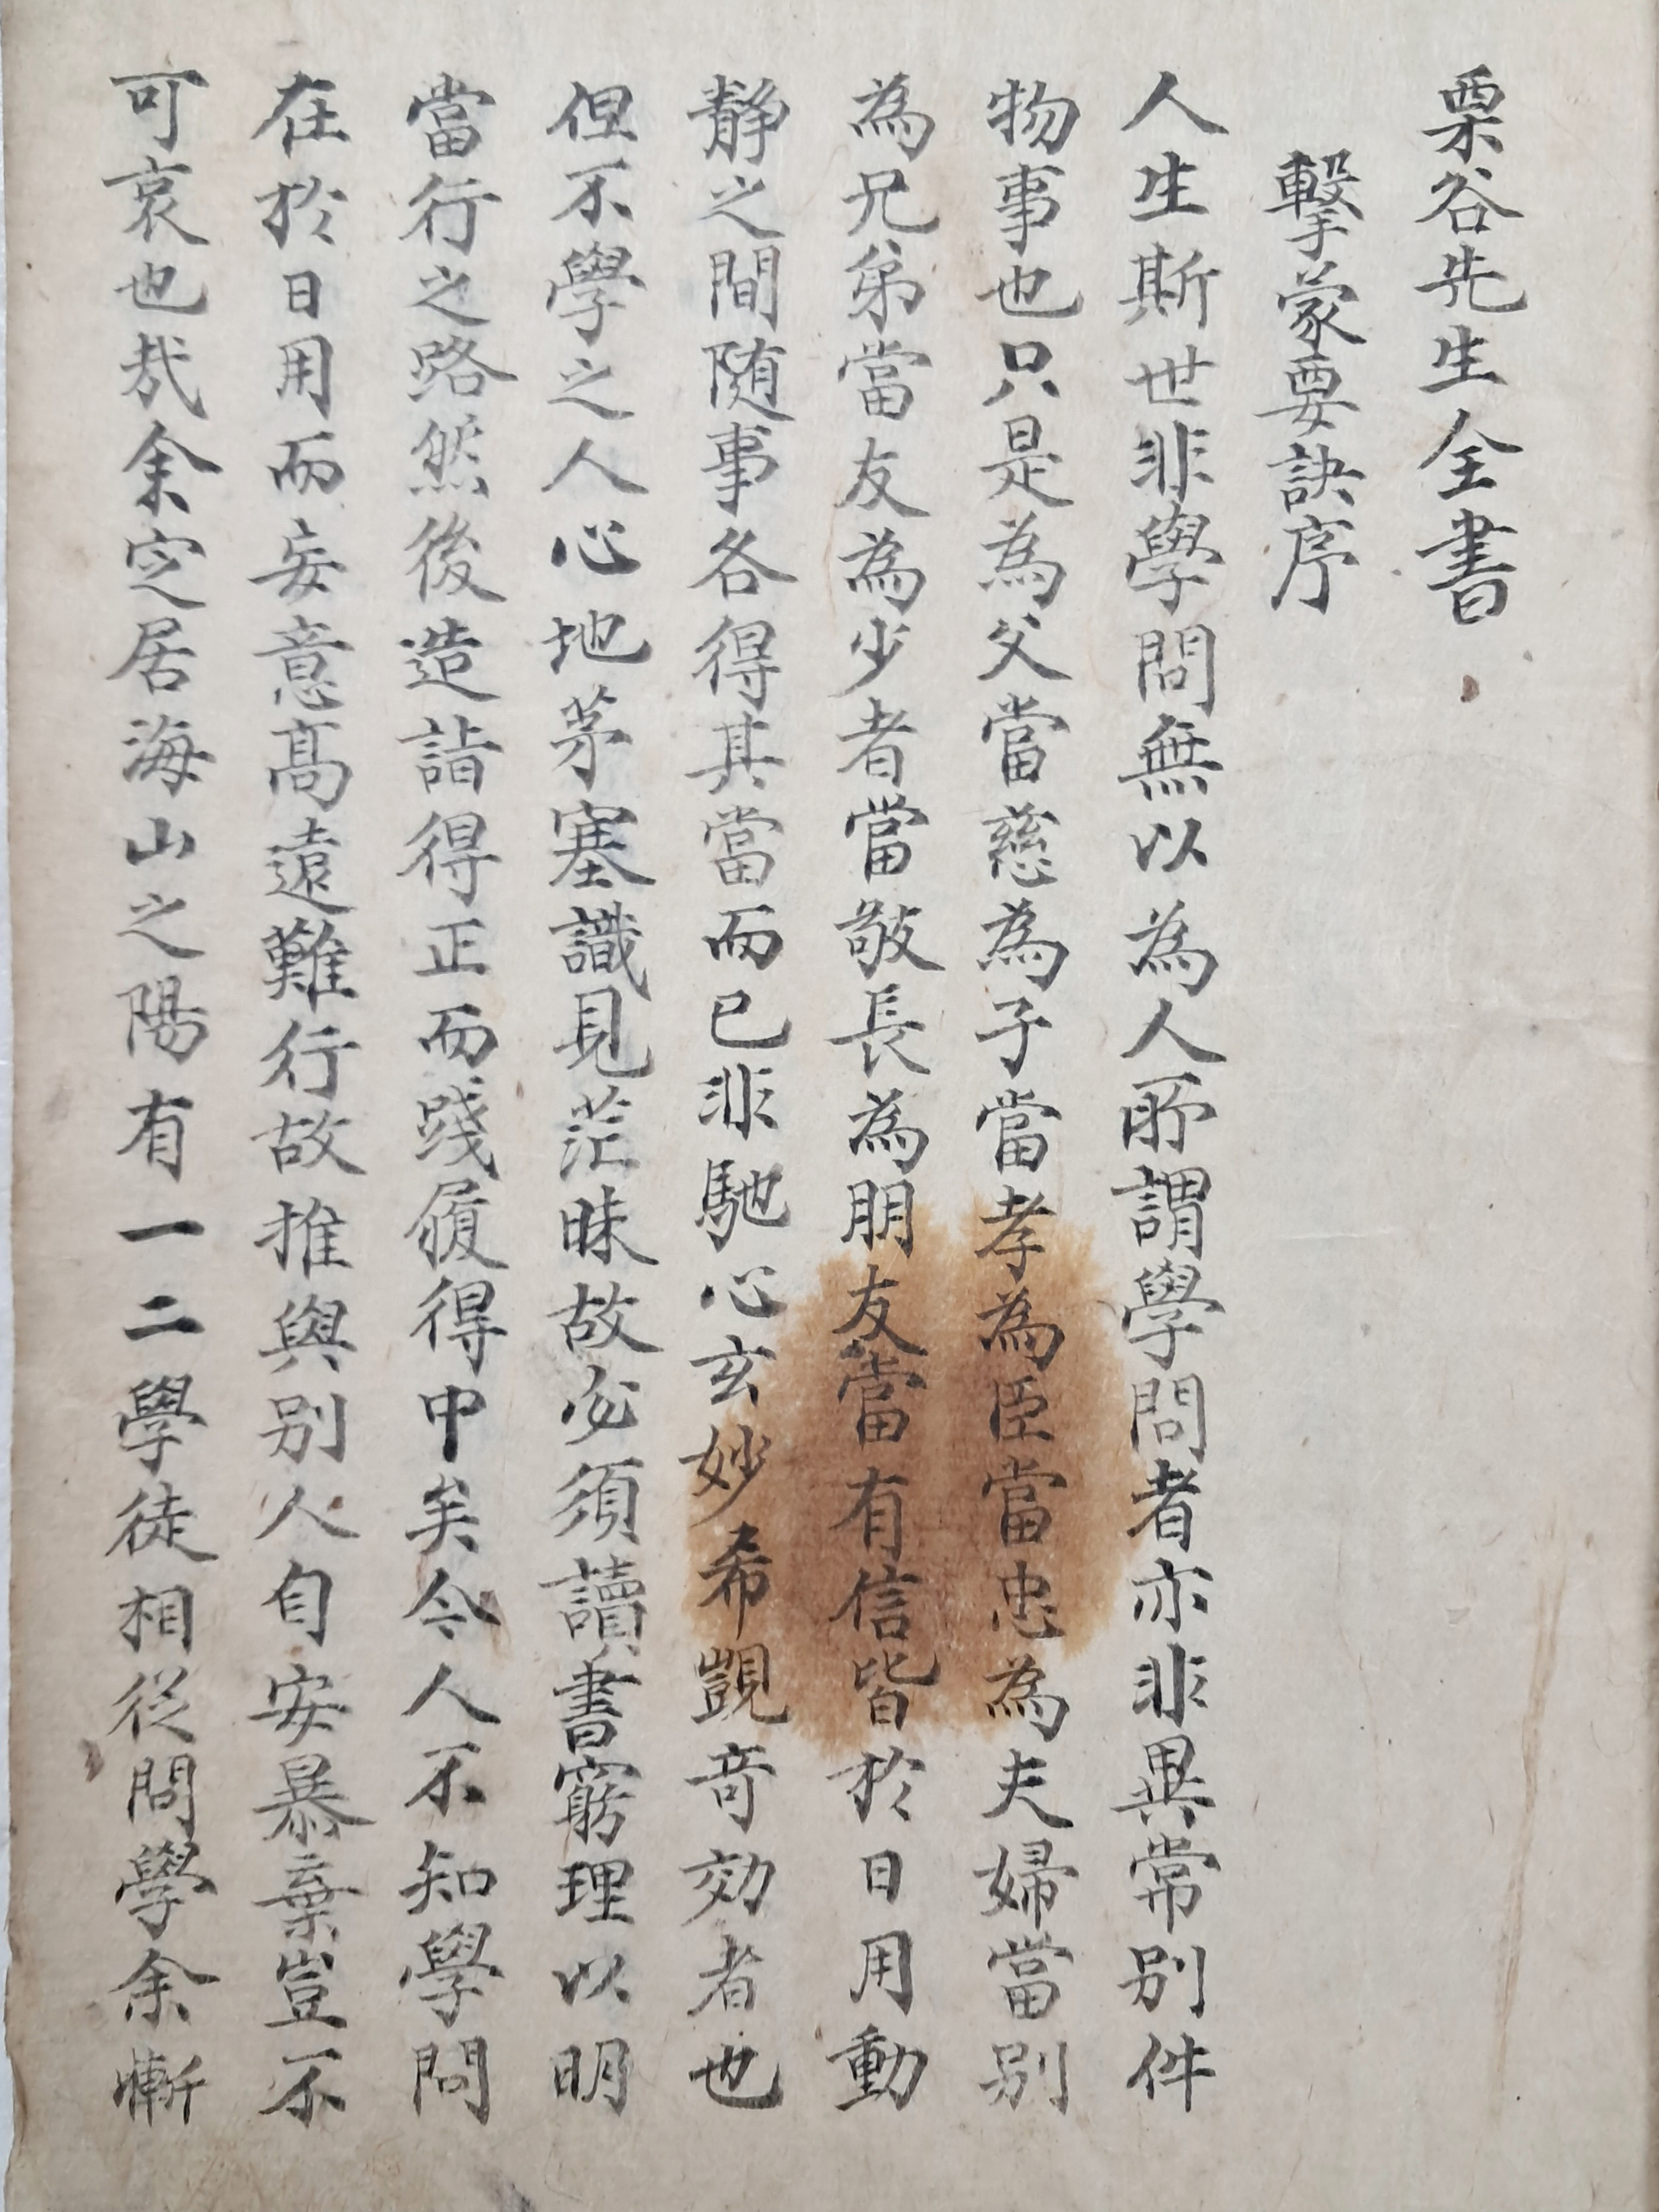 栗谷先生全書
擊蒙要訣序
人生斯世非學問無以為人所謂學問者亦非異常別件
物事也只是為父當慈為子當孝為臣當忠為夫婦當別
為兄弟當友為少者當敬長為朋友當有信皆於日用動
靜之間随事各得其當而已非馳心玄妙希覬奇効者也
但不學之人心地茅塞識見茫昧故必須讀書窮理以明
當行之路然後造詣得正而踐履得中矣今人不知學問
在於日用而妄意高遠難行故推與別人自安暴棄豈不
可哀也㦲余定居海山之陽有一二學徒相從問學余慚